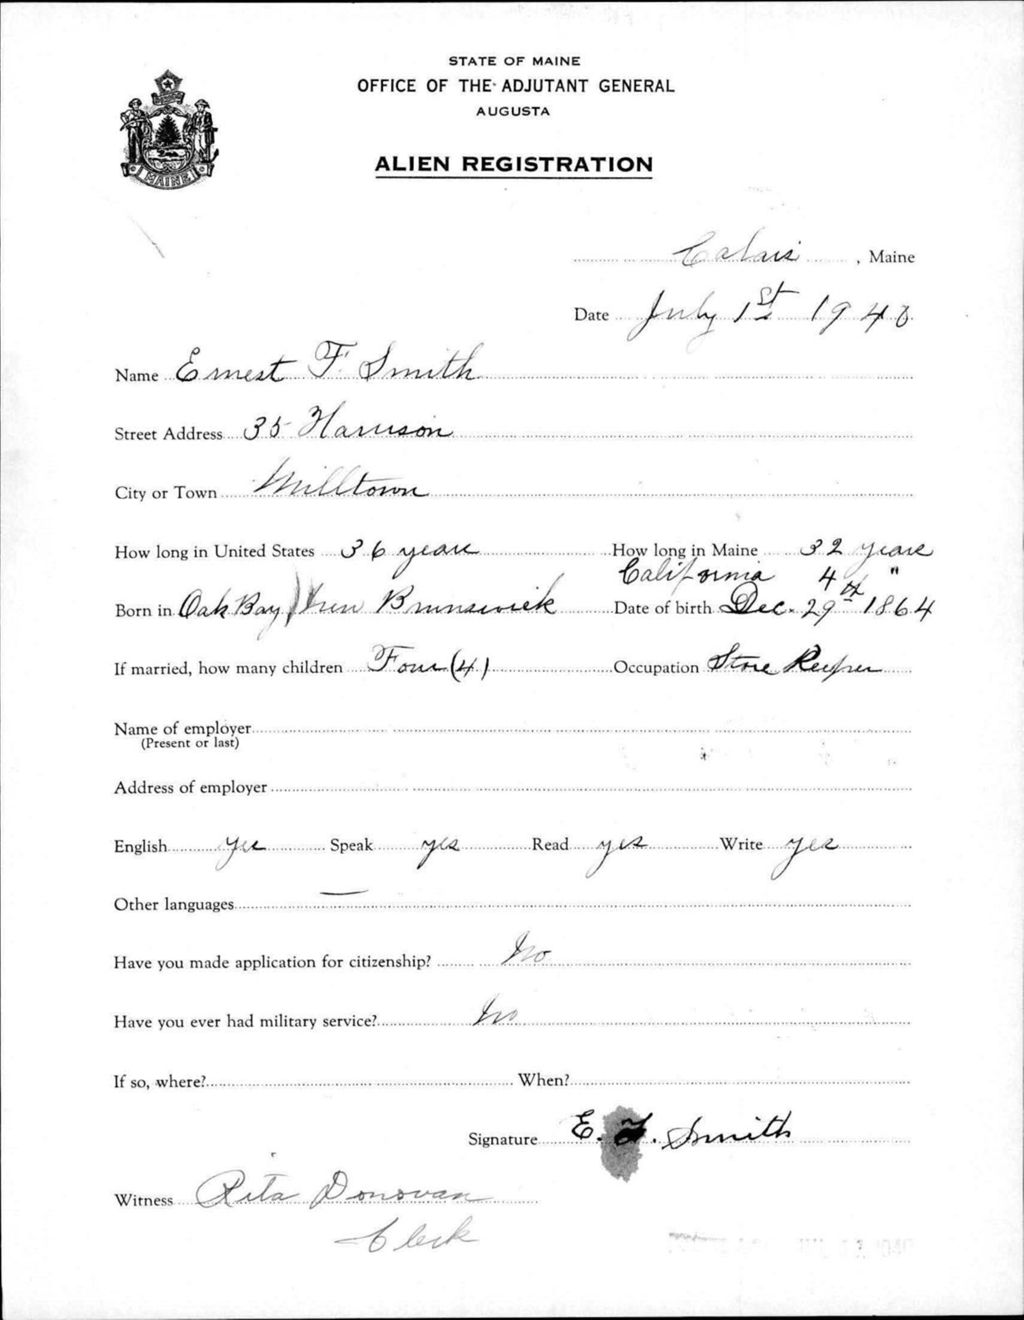 STATE OF MAINE
OFFICE OF THE ADJUTANT GENERAL
AUGUSTA
MAINE
ALIEN REGISTRATION
Calais, Maine
Date July 1st 1940
Name Ernest F. Smith
Street Address 35 Harrison
City or Town Milltown
How long in United States 36 years How long in Maine 32 years
California 4 "
Born in Oak Bay, New Brunswick Date of birth Dec. 29th 1864
If married, how many children Four (4) Occupation Store Keeper
Name of employer
(Present or last)
Address of employer
English yes Speak yes Read yes Write yes
Other languages —
Have you made application for citizenship? No
Have you ever had military service? No
If so, where? When?
Signature E. F. Smith
Witness Rita Donovan
Clerk